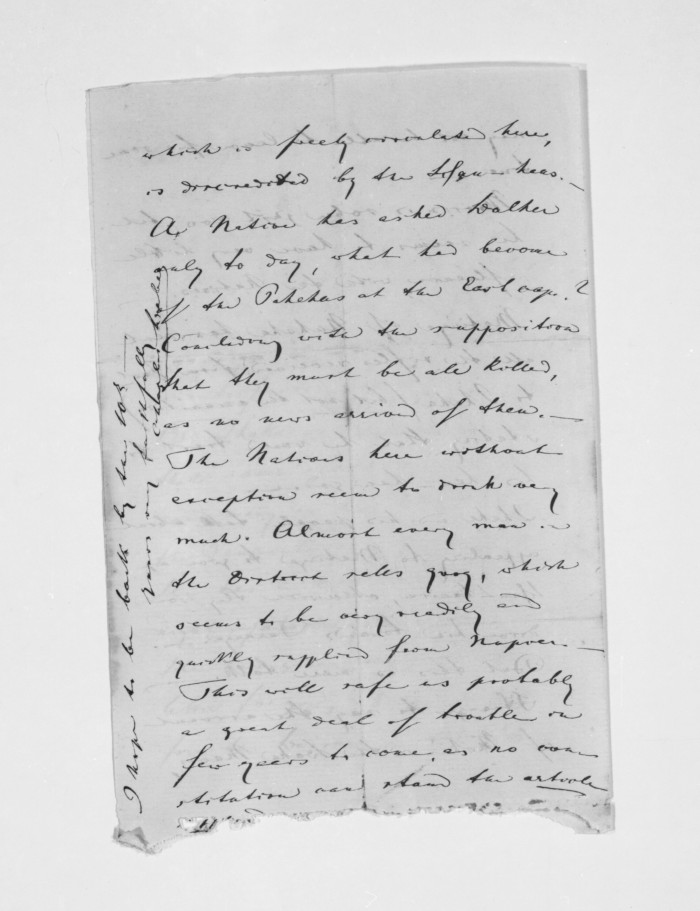 which is freely circulated here,
is discredited by the
A Native has asked Walker
only to day, what had become
of the Pakehas at the East cape?
Concluding with the supposition
that they must be all killed,
as no news arrived of them. —
The Natives here without
exception seem to drink very
much. Almost every man in
the District sells grog, which
seems to be very readily and
quickly supplied from Napier —
This will safe us probably
a great deal of trouble in
few years to come, as no con
stitution can stand the article
I hope to be back by
yours very faithfully